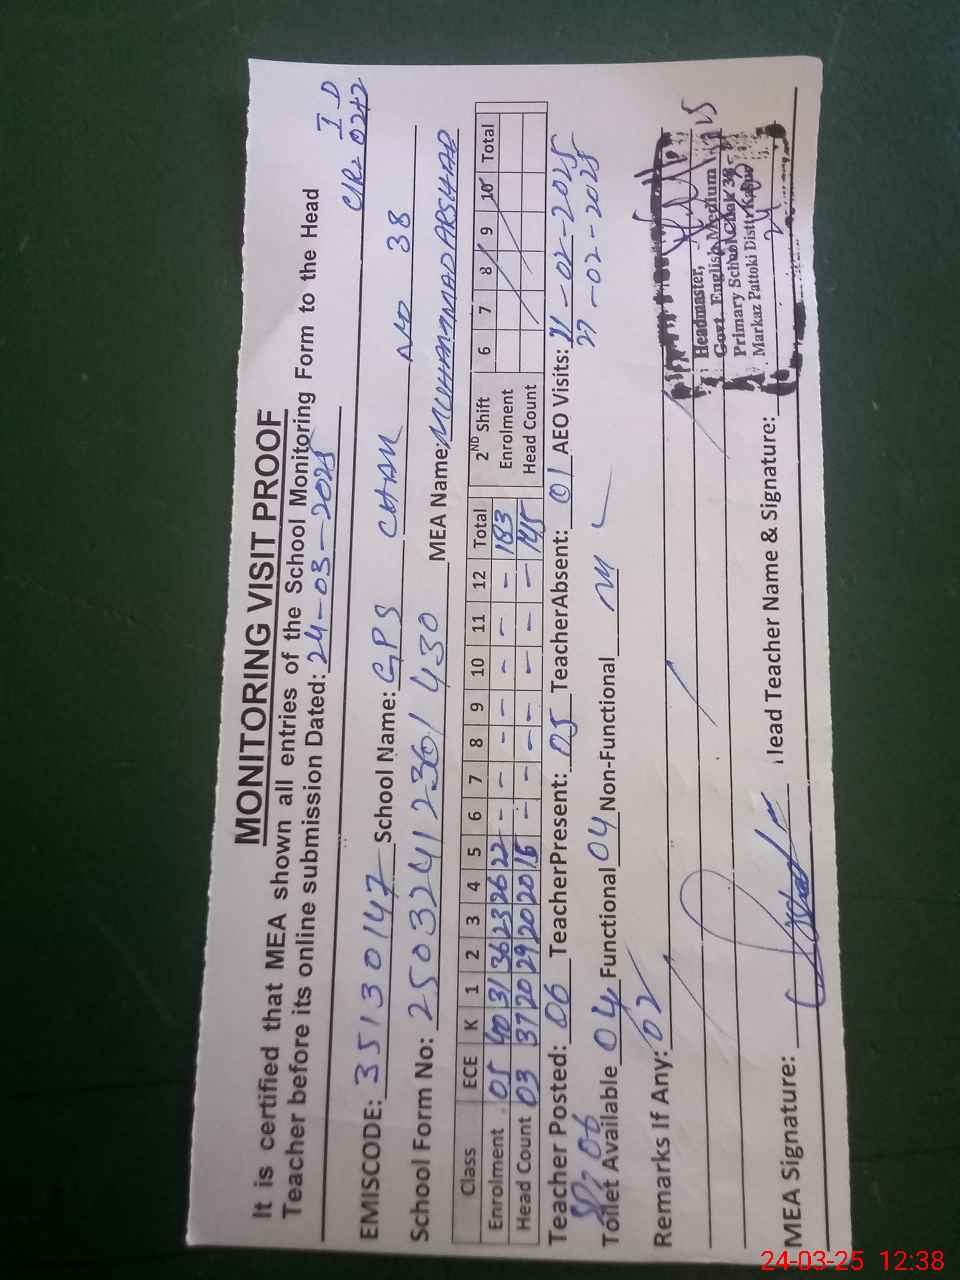 MONITORING VISIT PROOF
It is certified that MEA shown all entries of the School Monitoring Form to the Head
Teacher before its online submission Dated: 24-03-2025
EMISCODE: 35130147 School Name: GPS CHAK NO 38
School Form No: 250324123601430 MEA Name: MUHAMMAD ARSHAD
Class ECE K 1 2 3 4 5 6 7 8 9 10 11 12 Total 2ND Shift 6 7 8 9 10 Total
Enrolment 05 40 31 36 23 26 22 - - - - - - - 183 Enrolment
Head Count 03 37 20 29 20 20 16 - - - - - - - 145 Head Count
Teacher Posted: 06 TeacherPresent: 05 TeacherAbsent: 01 AEO Visits: 11-02-2025
27-02-2025
Toilet Available 04 Functional 04 Non-Functional
Remarks If Any: 02
Headmaster,
Govt. English Medium
Primary School Chak 38
Markaz Pattoki Distt. Kasur
MEA Signature: Head Teacher Name & Signature:
24-03-25 12:38